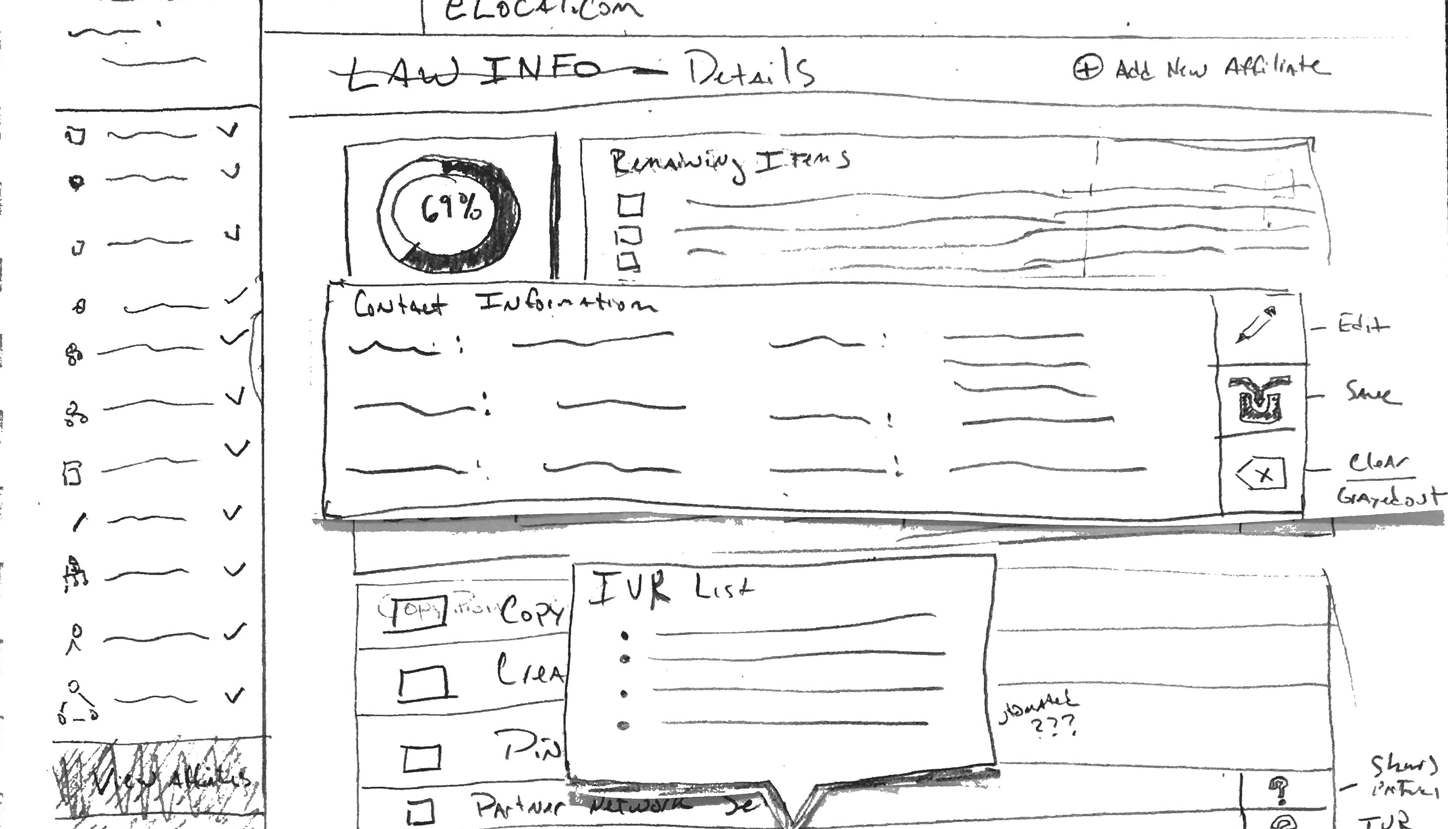 eLocal.com
LAW INFO - Details
Add New Affiliate
69%
Remaining Items
Contact Information
Edit
Save
Clear
Grayedout
IVR List
Copy
Crea
Pin
???
Partner Network Se
View Affiliates
?
Shows
IVR